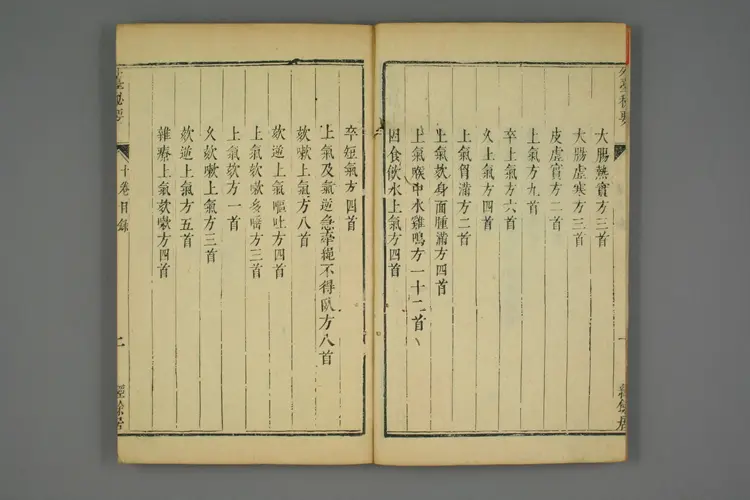 大腸熱實方三首
大腸虛寒方三首
皮虛實方二首
上氣方九首
卒上氣方六首
久上氣方四首
上氣胷滿方二首
上氣欬身面腫滿方四首
上氣喉中水雞鳴方一十二首
因食飲水上氣方四首
卒短氣方四首
上氣及氣逆急牽繩不得臥方八首
欬嗽上氣方八首
欬逆上氣嘔吐方四首
上氣欬嗽多唾方三首
上氣欬方一首
久欬嗽上氣方三首
欬逆上氣方五首
雜療上氣欬嗽方四首
十卷目錄